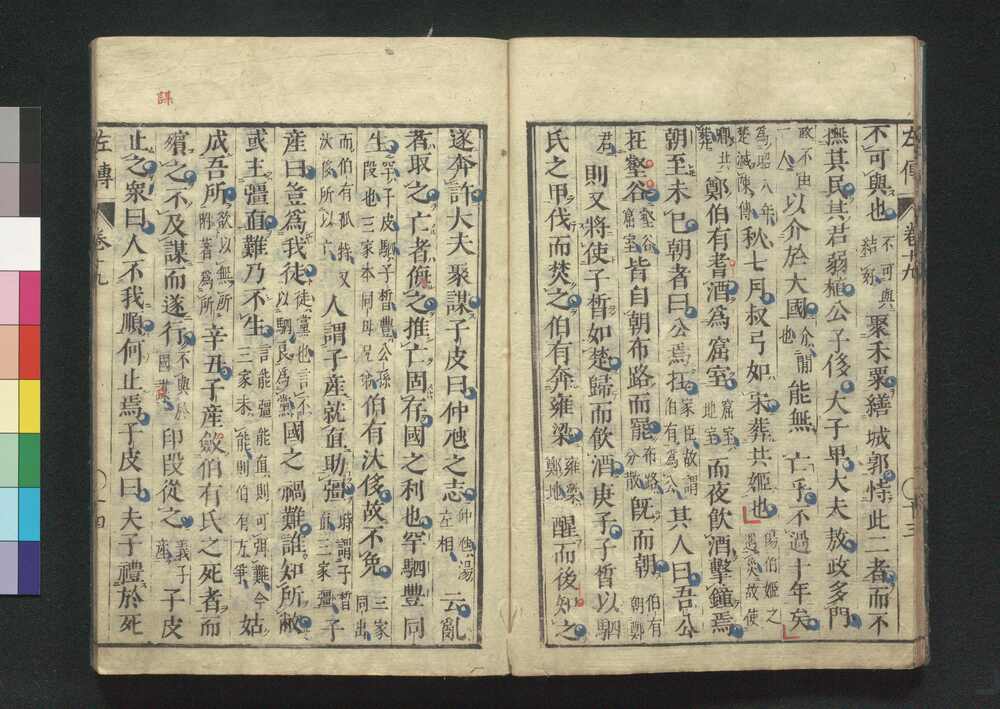 左傳 卷十九 十三
不可與也不可與結好聚禾粟繕城郭恃此二者而不
撫其民其君弱植公子侈大子卑大夫敖政多門
政不由一人以介於大國介間也能無亡乎不過十年矣
為昭八年楚滅陳傳秋七月叔弓如宋葬共姬也傷伯姬之遇災故使
卿共葬鄭伯有耆酒為窟室窟室地室而夜飲酒擊鐘焉
朝至未已朝者曰公焉在家臣故謂伯有為公其人曰吾公
在壑谷壑谷窟室皆自朝布路而罷布路分散既而朝伯有朝鄭
君則又將使子晳如楚歸而飲酒庚子子晳以駟
氏之甲伐而焚之伯有奔雍梁雍梁鄭地醒而後知之
遂奔許大夫聚謀子皮曰仲虺之志仲虺湯左相云亂
者取之亡者侮之推亡固存國之利也罕駟豐同
生罕子皮駟子晳豐公孫段也三家本同母兄弟伯有汰侈故不免三家同出
而伯有孤特又汰侈所以亡人謂子產就直助彊時謂子晳直三家彊子
產曰豈為我徒徒黨也言不以駟良為黨國之禍難誰知所敝
或主彊直難乃不生言能彊能直則可弭難今三家未能則伯有方爭姑
成吾所欲以無所附著為所辛丑子產斂伯有氏之死者而
殯之不及謀而遂行不與於國謀印段從之義子產子皮
止之衆曰人不我順何止焉子皮曰夫子禮於死
左傳 卷十九 十四
謀